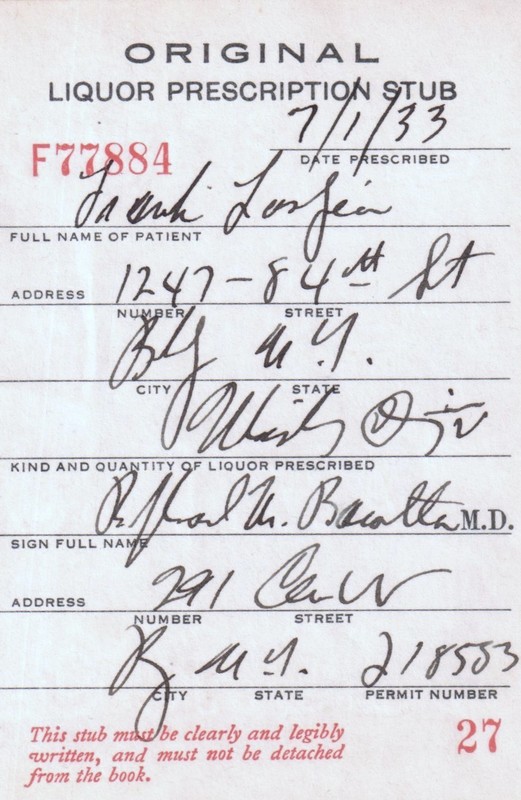 ORIGINAL
LIQUOR PRESCRIPTION STUB
7/1/33
F77884
DATE PRESCRIBED
Frank
FULL NAME OF PATIENT
1247 - 84th St
ADDRESS
NUMBER STREET
N.Y.
CITY STATE
KIND AND QUANTITY OF LIQUOR PRESCRIBED
M. M.D.
SIGN FULL NAME
291
ADDRESS
NUMBER STREET
N.Y. 218583
CITY STATE PERMIT NUMBER
This stub must be clearly and legibly
written, and must not be detached
from the book.
27